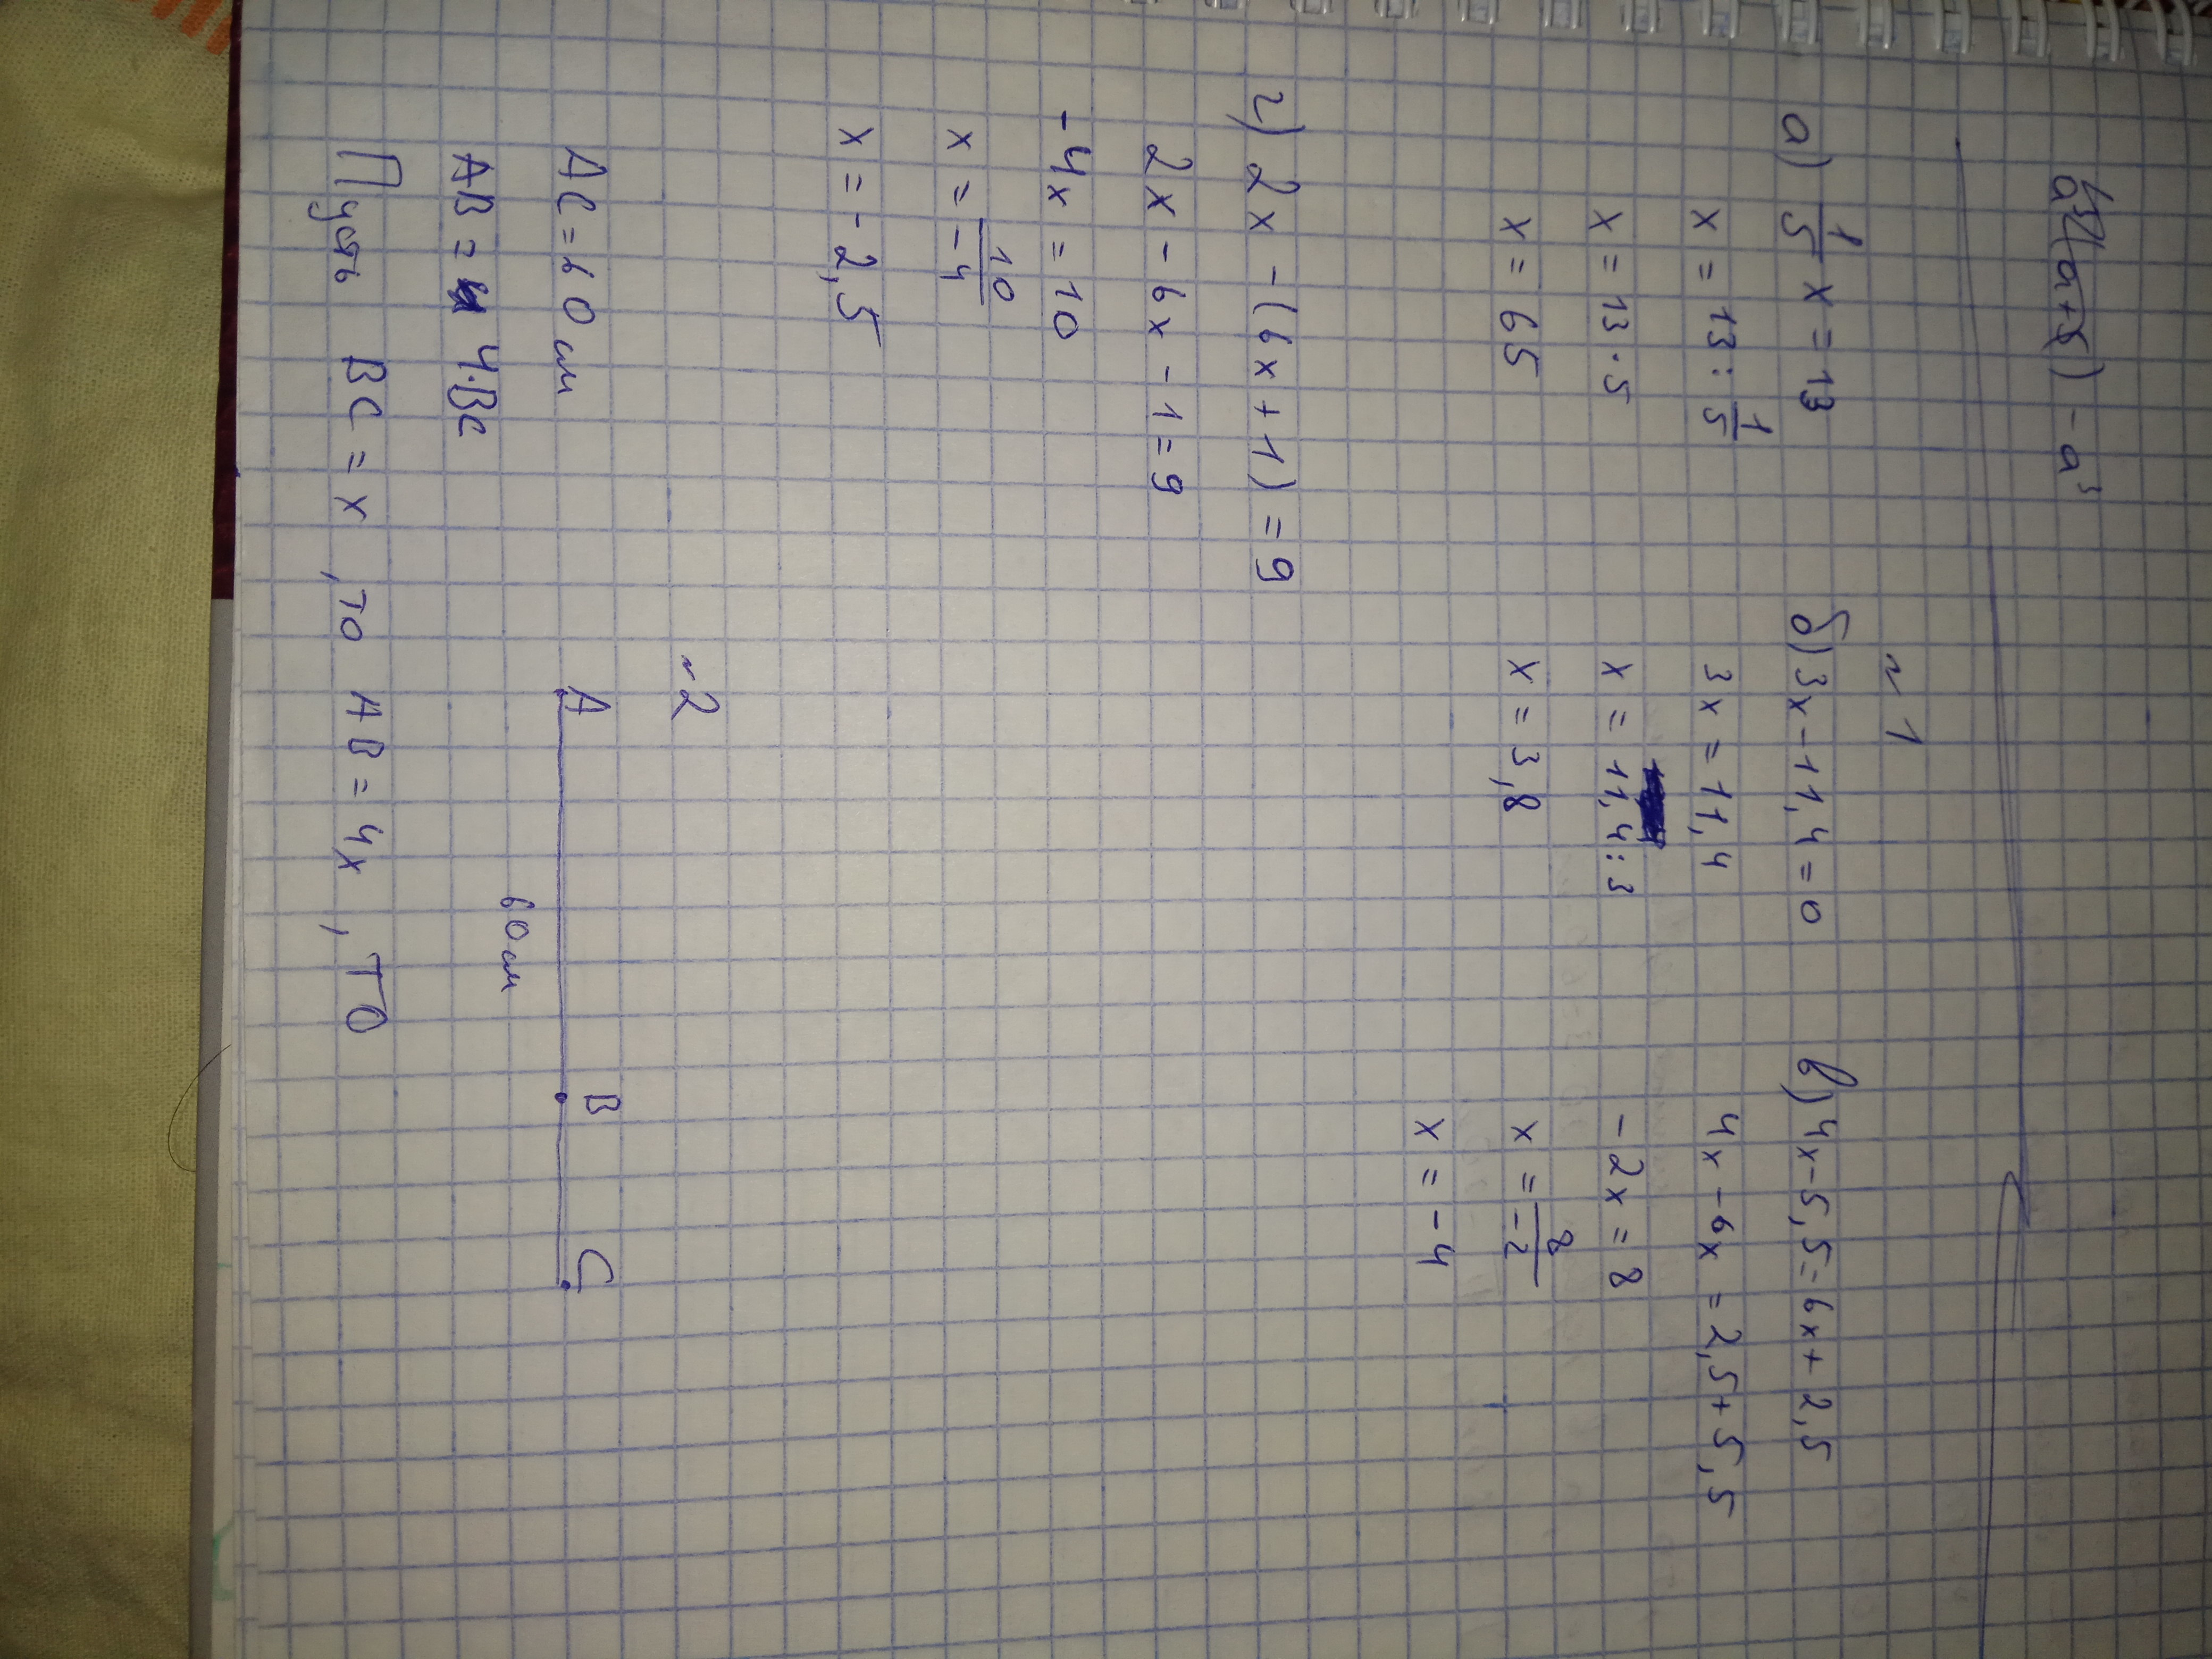 (a+b) - a³
№1
а) 1/5 x = 13
x = 13 : 1/5
x = 13 · 5
x = 65
б) 3x - 11,4 = 0
3x = 11,4
x = 11,4 : 3
x = 3,8
в) 4x - 5,5 = 6x + 2,5
4x - 6x = 2,5 + 5,5
-2x = 8
x = 8/-2
x = -4
г) 2x - (6x + 1) = 9
2x - 6x - 1 = 9
-4x = 10
x = 10/-4
x = -2,5
№2
AC = 60 см
AB = 4·BC
A B C
60 см
Пусть BC = x, то AB = 4x, то